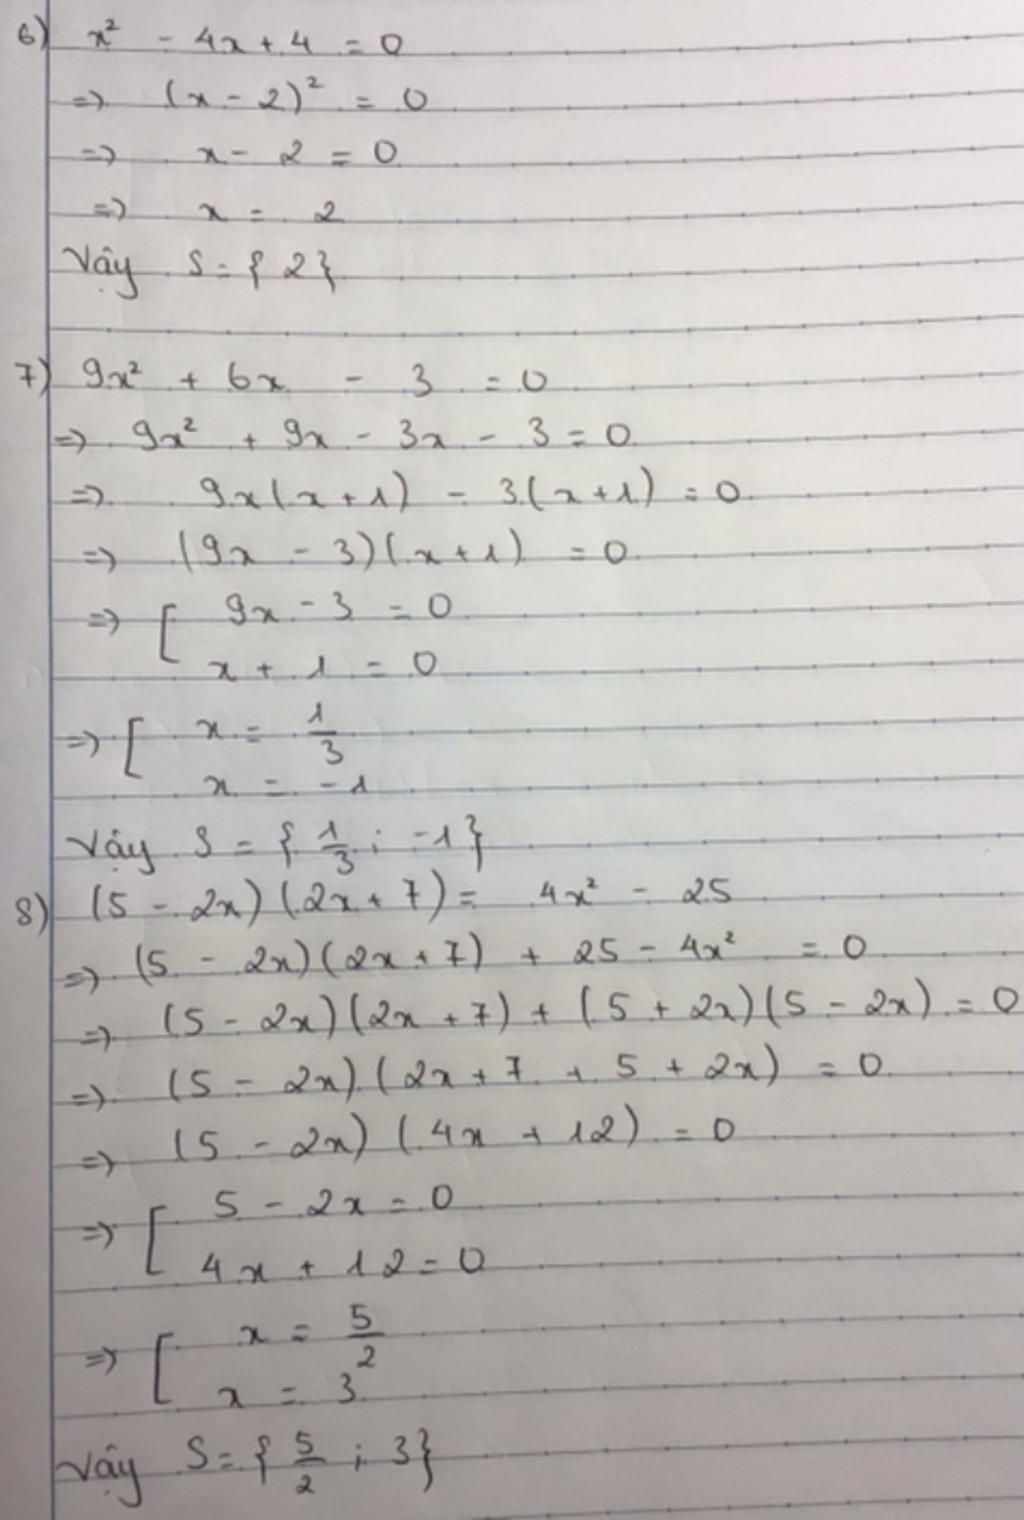 6) x² - 4x + 4 = 0
=> (x - 2)² = 0
=> x - 2 = 0
=> x = 2
Vậy S = { 2 }
7) 9x² + 6x - 3 = 0
=> 9x² + 9x - 3x - 3 = 0
=> 9x(x + 1) - 3(x + 1) = 0
=> (9x - 3)(x + 1) = 0
=> [ 9x - 3 = 0
x + 1 = 0
=> [ x = 1/3
x = -1
Vậy S = { 1/3 ; -1 }
8) (5 - 2x)(2x + 7) = 4x² - 25
=> (5 - 2x)(2x + 7) + 25 - 4x² = 0
=> (5 - 2x)(2x + 7) + (5 + 2x)(5 - 2x) = 0
=> (5 - 2x)(2x + 7 + 5 + 2x) = 0
=> (5 - 2x)(4x + 12) = 0
=> [ 5 - 2x = 0
4x + 12 = 0
=> [ x = 5/2
x = 3
Vậy S = { 5/2 ; 3 }